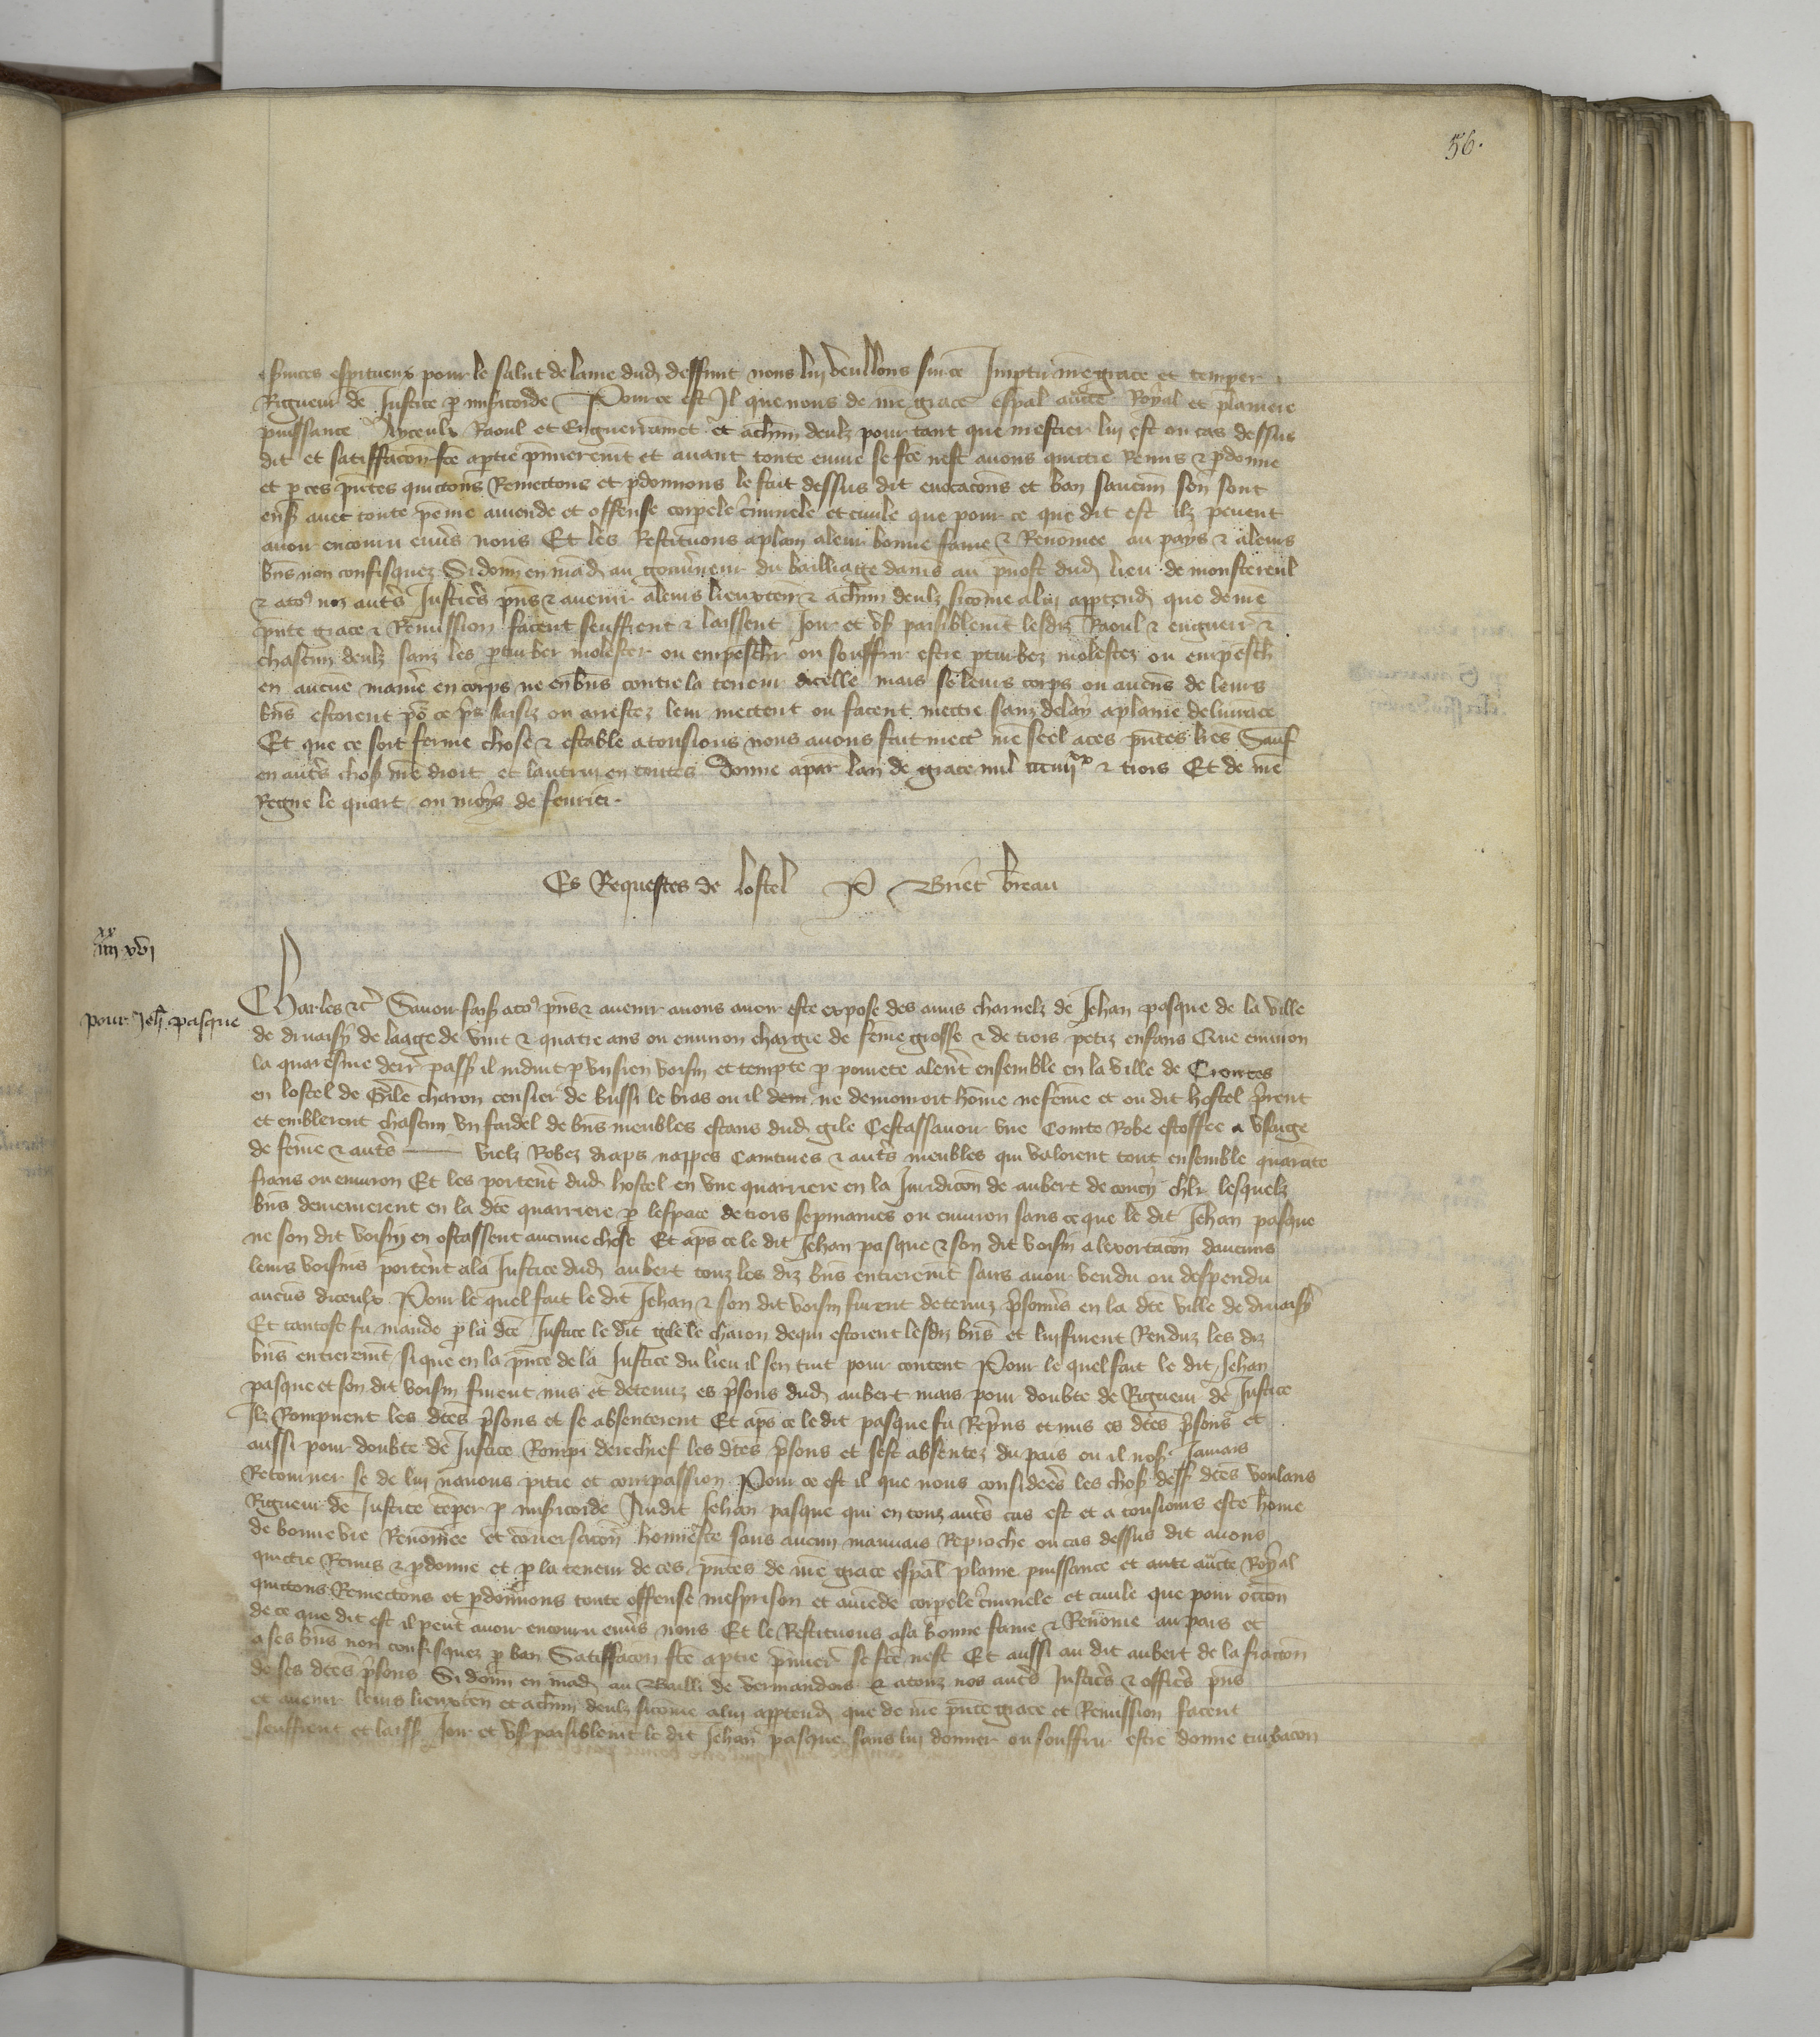 56.
services espiritueux pour le salut de lame dud deffunt nous lui veullons sur ce Impartir nre grace et temperer
Rigueur de Justice p misericorde Pource est Il que nous de nre grace espal auctte Royal et planiere
puissance Ayceulx Raoul et Enguerrannet et achun deulz pour tant que mestier lui est ou cas dessus
dit et satiffacon fce aptie pmierent et auant toute euure se fce nest auons quictie Remis & pdonne
et p ces pntes quictons Remectons et pdonnons le fait dessus dit euocacons et ban saucun sen sont
ens auec toute peine amende et offense corpele cminele et ciuile que pour ce que dit est Ilz peuent
auoir encouru enuers nous Et les Restituons aplain aleur bonne fame & Renomee au pays & aleurs
bns non confisquez Si donn en mad au gouuneur du bailliage damiens au puost dud lieu de monstereul
& ato9 noz auts Justics pns & auenir aleurs lieuxten & achun deulz sicome alui apptend que de nre
pnte grace & Remission facent seuffrent & laissent Joir et vs paisiblement lesdiz Raoul & enguerr &
chascun deulz sanz les pturber molester ou empeschr ou souffrir estre pturbez molestez ou empesch
en aucune maniere en corps ne en bns contre la teneur dicelle mais se leurs corps ou aucuns de leurs
bns estoient po ce pris saisiz ou arrestez leur mectent ou facent mectre sanz delay a plaine deliurace
Et que ce soit ferme chose & estable atousiours nous auons fait mect nre seel aces pntes lres Sauf
en auts chos nre droit et lautrui en toutes Donne apar lan de grace mil ccciiijxx & trois Et de nre
Regne le quart ou moys de feurier.
Es Requestes de lostel P Briet breau
xx
iiij xvj
pour Jeh pasque
Charles &c Sauoir fais ato9 pns & auenir auons auoir este expose des amis charnelz de Jehan pasque de la ville
de diuaisy de laage de vint & quatre ans ou enuiron chargie de feme grosse & de trois petiz enfans Que enuiron
la quaresme derr pass il induit p vn sien voisin et tempte p pourete alent ensemble en la ville de Crontes
en lostel de Gile charon censier de bussi le bras ou il dem ne demouroit home ne feme et ou dit hostel prent
et emblerent chascun vn fardel de bns meubles estans dud gile Cestassauoir vne Courte Robe estoffee a vsage
de feme & auts vielz Robez draps nappes Camines & auts meubles qui valoient tout ensemble quarate
frans ou enuiron Et les portent dud hostel en vne quarriere en la Juridicon de aubert de coucy chlr lesquelz
bns demeurerent en la dte quarriere p lespace de trois sepmaines ou enuiron sans ce que le dit Jehan pasque
ne son dit voisin en ostassent aucune chose Et aps ce le dit Jehan pasque & son dit voisin a lexortacon daucuns
leurs voisins portent ala Justice dud aubert touz les diz bns entierement sans auoir vendu ou despendu
aucuns diceulx Pour le quel fait le dit Jehan & son dit voisin furent detenuz psonnrs en la dte ville de diuaisy
Et tantost fu mande p la dte Justice le dit gile le charon de qui estoient lesdiz bns et lui furent Renduz les diz
bns entierement si que en la pnce de la Justice du lieu il sen tint pour content Pour le quel fait le dit Jehan
pasque et son dit voisin furent mis et detenuz es psons dud aubert mais pour doubte de Rigueur de Justice
Ilz Rompirent les dtes psons et se absenterent Et aps ce le dit pasque fu Repris et mis es dtes psons et
aussi pour doubte de Justice Rompi derechief les dtes psons et sest absentez du pais ou il nos Jamais
Retourner se de lui nauons pitie et compassion Pour ce est il que nous consideres les chos dess dtes voulans
Rigueur de Justice temper p misericorde Audit Jehan pasque qui en touz auts cas est et a tousiours este home
de bonne vie Renomee et conuersacon honneste sans aucun mauuais Reproche ou cas dessus dit auons
quictie Remis & pdonne et p la teneur de ces pntes de nre grace espal plaine puissance et aute auctte Royal
quictons Remectons et pdonnons toute offense mesprison et amede corpele cminele et ciuile que pour occon
de ce que dit est il peut auoir encouru enuers nous Et le Restituons asa bonne fame & Renomee au pais et
a ses bns non confisquez p ban Satiffacon fte aptie pmier se fce nest Et aussi au dit aubert de la fraccon
de ses dtes psons Si donn en mad au Bailli de vermandois & atouz nos auts Justics & offics pns
et auenir leurs lieuxten et achun deulz sicome alui apptend que de nre pnte grace et Remission facent
seuffrent et laiss Joir et vs paisiblement le dit Jehan pasque sans lui donner ou souffrir estre donne turbacon